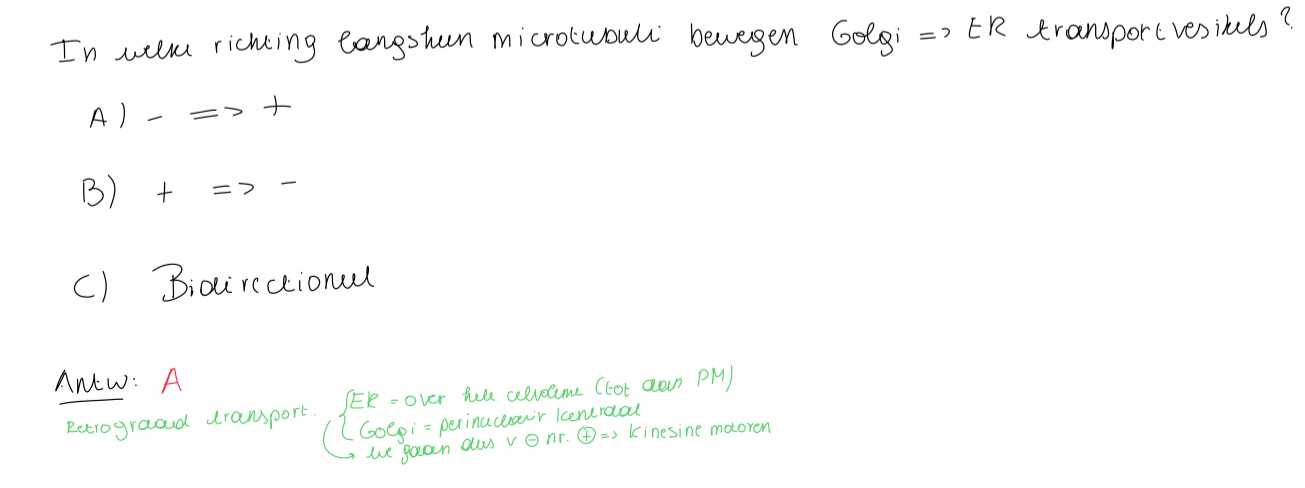 In welke richting langsheen microtubuli bewegen Golgi => ER transportvesikels?
A) - => +
B) + => -
C) Bidirectioneel
Antw: A
Retrograad transport.
ER = over hele celvolume (tot aan PM)
Golgi = perinucleair / centraal
we gaan dus v ⊖ nr. ⊕ => kinesine motoren